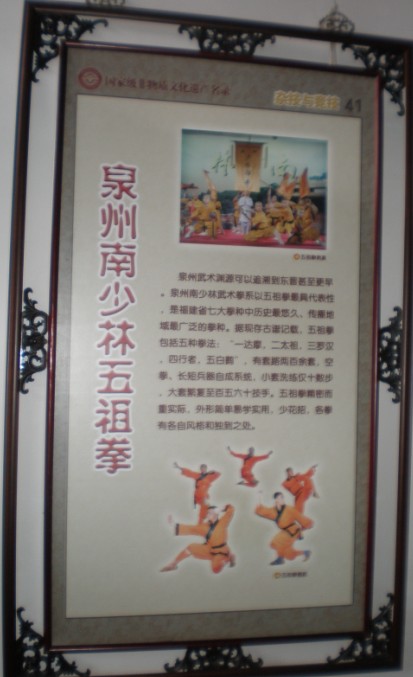 国家级非物质文化遗产名录
杂技与竞技 41
泉州南少林五祖拳
泉州武术渊源可以追溯到东晋甚至更早
。泉州南少林武术拳系以五祖拳最具代表性
，是福建省七大拳种中历史最悠久、传播地
域最广泛的拳种。据现存古谱记载，五祖拳
包括五种拳法：“一达摩，二太祖，三罗汉
，四行者，五白鹤”，有套路两百余套，空
拳、长短兵器自成系统，小套洗练仅十数步
，大套繁复至百五六十技手。五祖拳精密而
重实际，外形简单易学实用，少花招，各拳
有各自风格和独到之处。